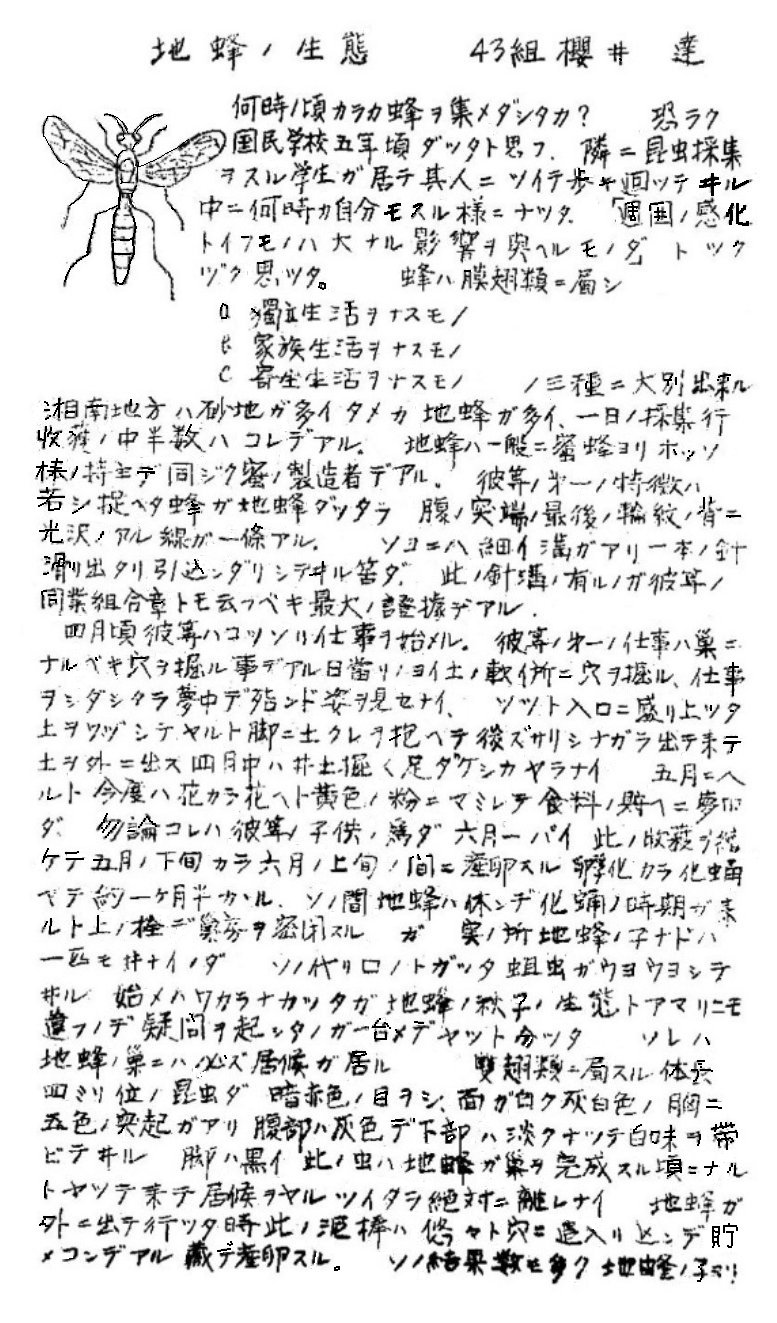 地蜂ノ生態　43組櫻井 達
何時ノ頃カラカ蜂ヲ集メダシタカ？　恐ラク
国民学校五年頃ダッタト思フ、隣ニ昆虫採集
ヲスル学生ガ居テ其人ニツイテ歩キ廻ッテヰル
中ニ何時カ自分モスル様ニナツタ。「週囲ノ感化
トイフモノハ大ナル影響ヲ與ヘルモノダ」トツク
ヅク思ツタ。　蜂ハ膜翅類ニ属シ
a 獨立生活ヲナスモノ
b 家族生活ヲナスモノ
c 寄生生活ヲナスモノ　ノ三種ニ大別出来ル
湘南地方ハ砂地ガ多イタメカ地蜂ガ多イ、一日ノ採集行
収穫ノ中半数ハコレデアル。　地蜂ハ一般ニ蜜蜂ヨリホッソ
ノ持主デ同ジク蜜ノ製造者デアル。　彼等ノ第一ノ特徴ハ
若シ捉ヘタ蜂ガ地蜂ダッタラ　腹ノ突端ノ最後ノ輪紋ノ背ニ
光沢ノアル線ガ一條アル。　ソコニハ細イ溝ガアリ一本ノ針
滑リ出タリ引込ンダリシテヰル筈ダ。　此ノ針溝ノ有ルノガ彼等ノ
同業組合章トモ云フベキ最大ノ證據デアル．
四月頃彼等ハコツソリ仕事ヲ始メル。　彼等ノ第一ノ仕事ハ巣ニ
ナルベキ穴ヲ掘ル事デアル日當リノヨイ土ノ軟イ所ニ穴ヲ掘ル、仕事
ヲシダシタラ夢中デ殆ンド姿ヲ見セナイ、　ソツト入口ニ盛リ上ツタ
土ヲクヅシテヤルト脚ニ土クレヲ抱ヘテ後ズサリシナガラ出テ来テ
土ヲ外ニ出ス四月中ハ井土掘く足ダケシカヤラナイ　五月ニヘ
ルト今度ハ花カラ花ヘト黄色ノ粉ニマミレテ食料ノ貯ヘニ夢中
ダ　勿論コレハ彼等ノ子供ノ為ダ　六月一パイ此ノ収穫ヲ續
ケテ五月ノ下旬カラ六月ノ上旬ノ間ニ産卵スル　孵化カラ化蛹
マデ約一ケ月半カカル、ソノ間地蜂ハ休ンデ化蛹ノ時期ガ来
ルト上ノ栓デ巣ヲ密閉スル　ガ　実ノ所地蜂ノ子ナドハ
一匹モ井ナイノダ　ソノ代リ口ノトガッタ蛆虫ガウヨウヨシテ
ヰル　始メハワカラナカッタガ地蜂ノ秋子ノ生態トアマリニモ
違フノデ疑問ヲ起シタノガ一台メデヤット分ッタ　ソレハ
地蜂ノ巣ニハ必ズ居候ガ居ル　雙翅類ニ属スル体長
四ミリ位ノ昆虫ダ　暗赤色ノ目ヲシ、面ガ白ク灰白色ノ胸ニ
五色ノ突起ガアリ　腹部ハ灰色デ下部ハ淡クナッテ白味ヲ帯
ビテヰル　脚ハ黒イ　此ノ虫ハ地蜂ガ巣ヲ完成スル頃ニナル
トヤッテ来テ居候ヲヤル　ツイタラ絶対ニ離レナイ　地蜂ガ
外ニ出テ行ッタ時此ノ泥棒ハ悠々ト穴ニ這入リ込ンデ貯
メコンデアル蔵デ産卵スル。　ソノ結果数モ多ク地蜂ノ子ヨリ